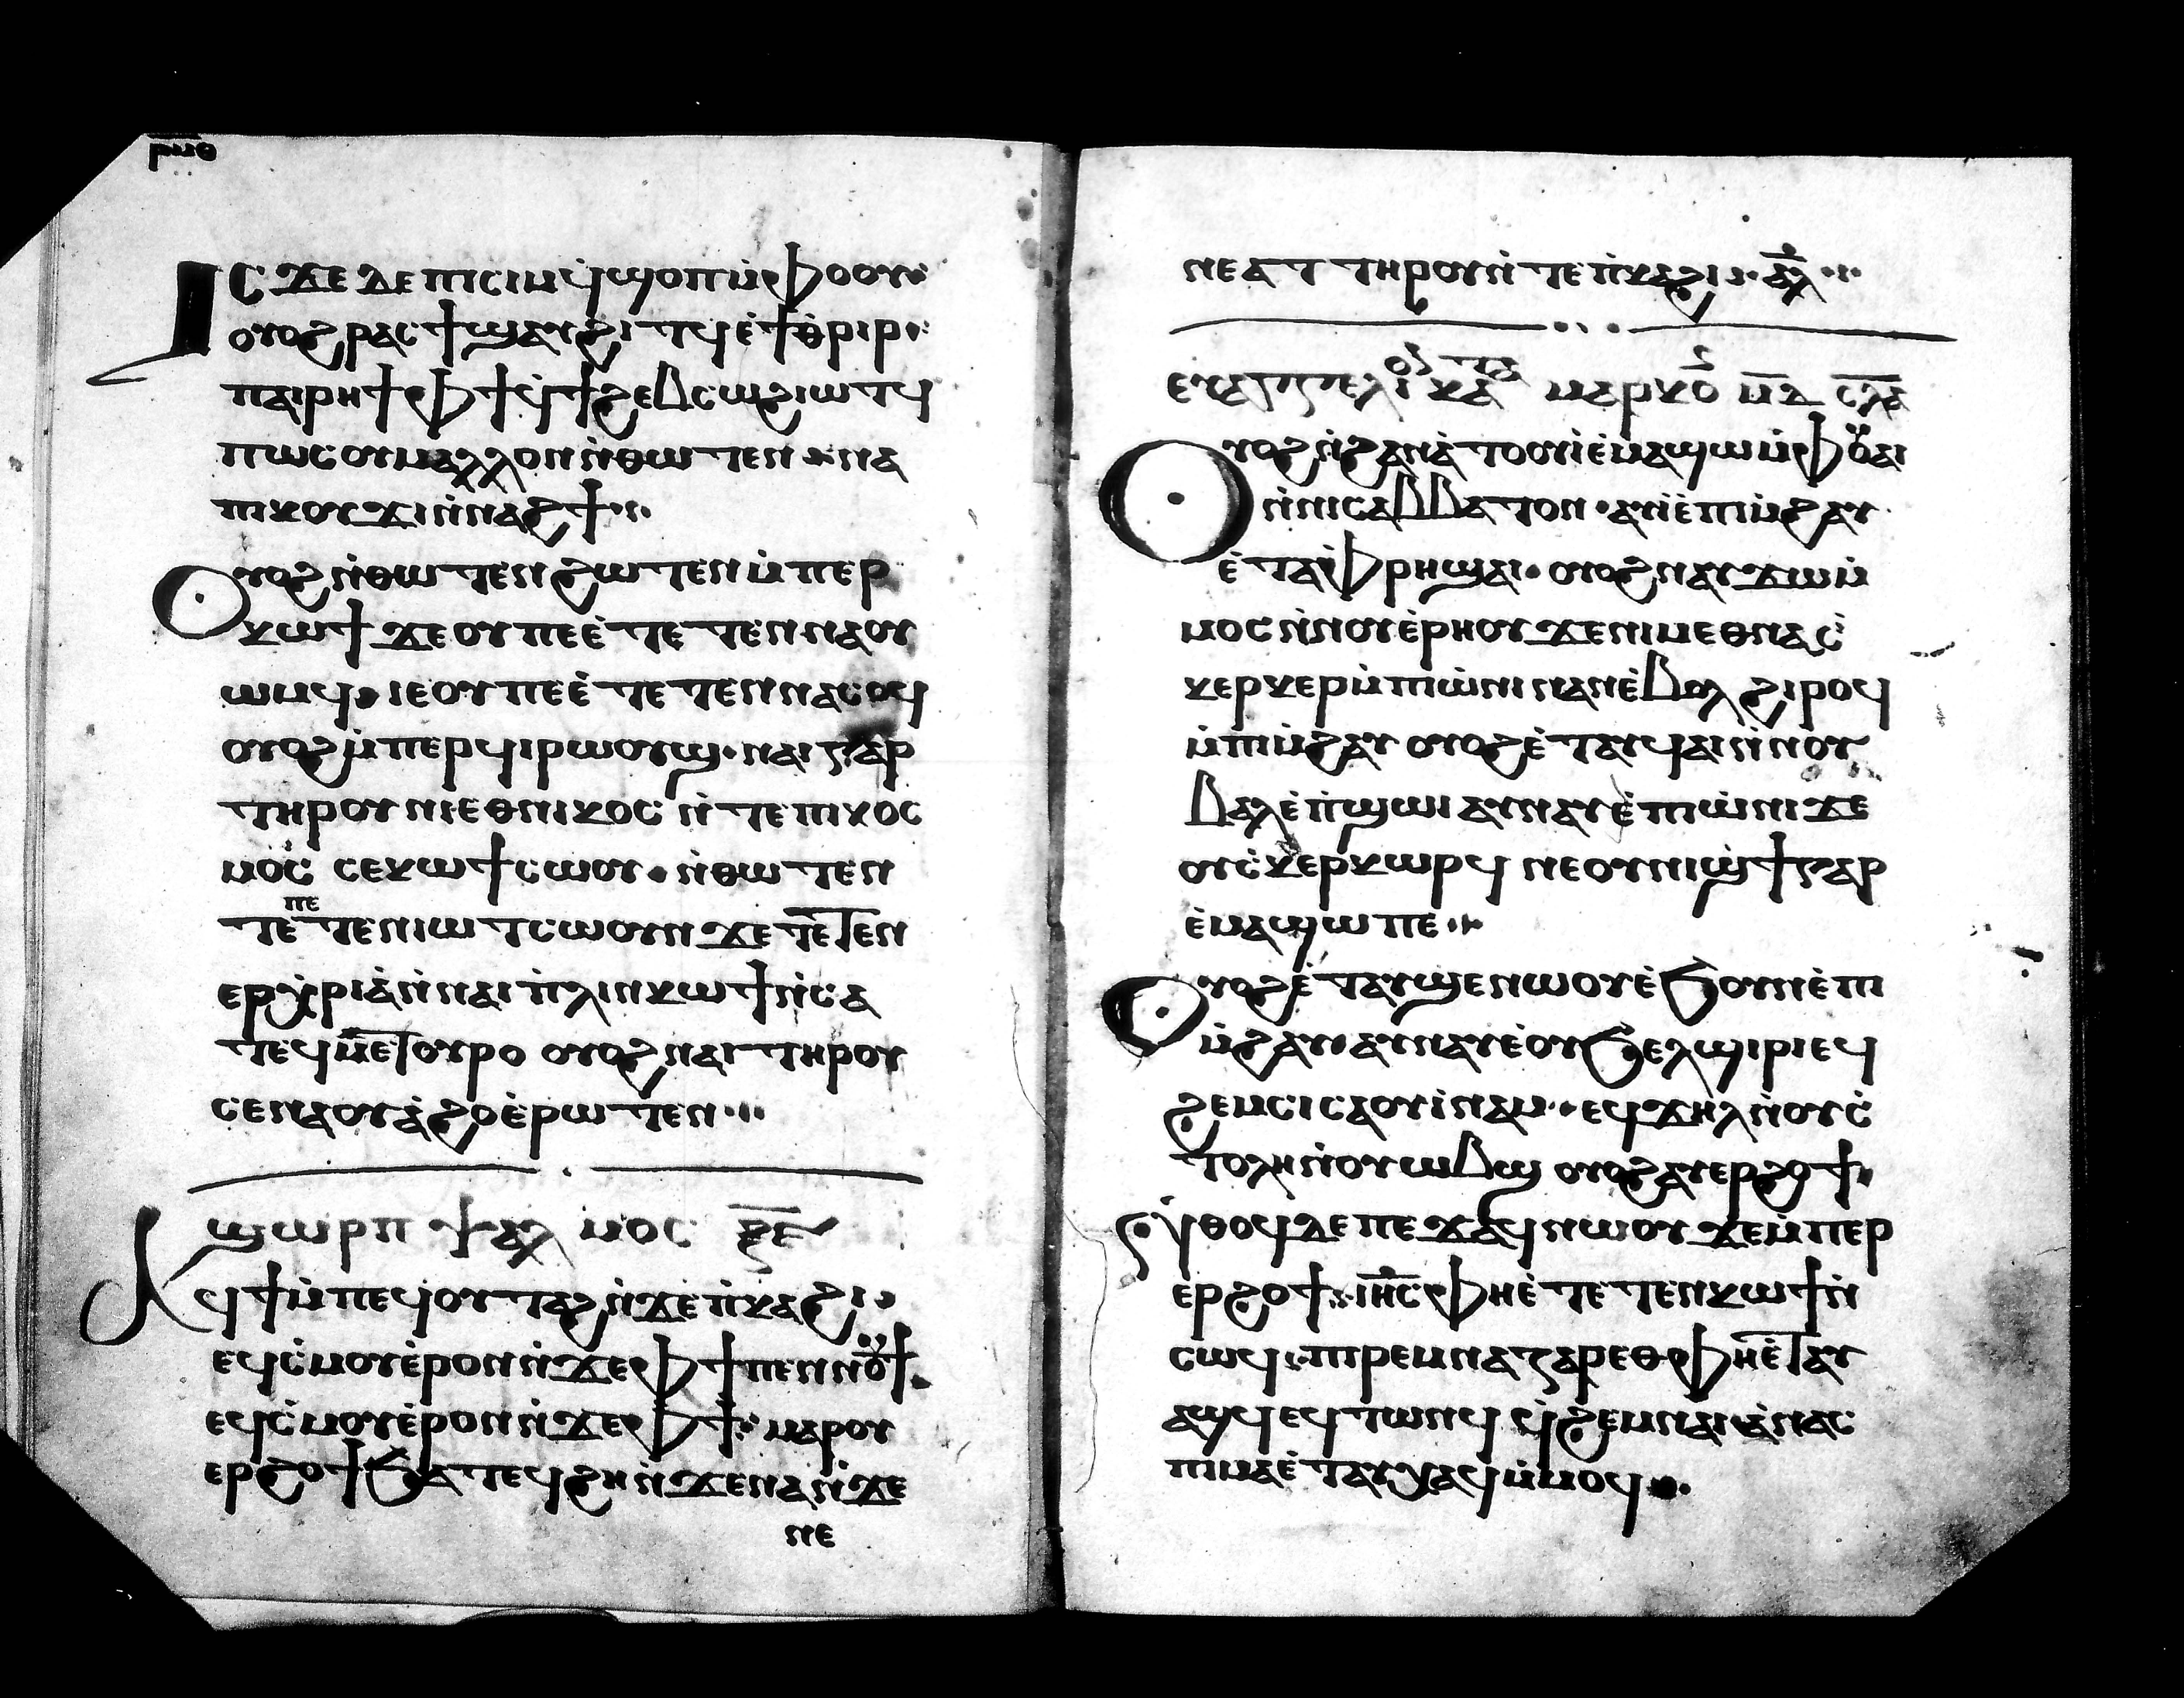 ⲣⲙⲑ
ⲒⲤ ϪⲈ ⲇⲉ ⲡⲓⲥⲓⲙ ϥ̇ϣⲟⲡ ⲙ̇ⲫⲟⲟⲩ
ⲟⲩⲟϩ ⲣⲁⲥϯ ϣⲁⲩϩⲓⲧϥ ⲉ̇ϯⲑⲣⲓⲣ
ⲡⲁⲓⲣⲏϯ ⲫϯ ϥ̇ϯϩⲉⲃⲥⲱ ϩⲓⲱⲧϥ
ⲡⲱⲥⲟⲩⲙⲁⲗⲗⲟⲛ ⲛ̇ⲑⲱⲧⲉⲛ ⲛⲁ
ⲡⲓⲕⲟⲩϫⲓ ⲛ̇ⲛⲁϩϯ
Ⲟⲩⲟϩ ⲛ̇ⲑⲱⲧⲉⲛ ϩⲱⲧⲉⲛ ⲙ̇ⲡⲉⲣ
ⲕⲱϯ ϫⲉ ⲟⲩ ⲡⲉ ⲉ̇ⲧⲉⲧⲉⲛⲛⲁⲟⲩ
ⲱⲙϥ ⲓⲉ ⲟⲩ ⲡⲉ ⲉ̇ⲧⲉⲧⲉⲛⲛⲁⲥⲟϥ
ⲟⲩⲟϩ ⲙ̇ⲡⲉⲣϥⲓⲣⲱⲟⲩϣ · ⲛⲁⲓ ⲅⲁⲣ
ⲧⲏⲣⲟⲩ ⲛⲓⲉⲑⲛⲓⲕⲟⲥ ⲛ̇ⲧⲉ ⲡⲓⲕⲟⲥ
ⲙⲟⲥ ⲥⲉⲕⲱϯ ⲥⲱⲟⲩ · ⲛ̇ⲑⲱⲧⲉⲛ
ⲡⲉ
ⲧⲉⲧⲉⲛⲓⲱⲧ ⲥⲱⲟⲩⲛ ϫⲉ ⲧⲉⲧⲉⲛ
ⲉⲣⲭ̇ⲣⲓⲁ̇ ⲛ̇ⲛⲁⲓ ⲡ̇ⲗⲓⲛ ⲕⲱϯ ⲛ̇ⲥⲁ
ⲧⲉϥⲙⲉⲧⲟⲩⲣⲟ ⲟⲩⲟϩ ⲛⲁⲓ ⲧⲏⲣⲟⲩ
ⲥⲉⲛⲁⲟⲩⲁ̇ϩⲟ ⲉ̇ⲣⲱⲧⲉⲛ
ϣⲱⲣⲡ ⲯⲁⲗⲙⲟⲥ ⲝ̅ⲉ̅
Ⲁϥϯ ⲙ̇ⲡⲉϥⲟⲩⲧⲁϩ ⲛ̇ϫⲉ ⲡ̇ⲕⲁϩⲓ
ⲉϥⲥ̇ⲙⲟⲩ ⲉ̇ⲣⲟⲛ ⲛ̇ϫⲉ ⲫϯ ⲡⲉⲛⲛⲟⲩϯ
ⲉϥⲥ̇ⲙⲟⲩ ⲉ̇ⲣⲟⲛ ⲛ̇ϫⲉ ⲫϯ ⲙⲁⲣⲟⲩ
ⲉⲣϩⲟϯ ϧⲁⲧⲉϥϩⲏ ⲛ̇ϫⲉ ⲛⲁ ⲛ̇ϫⲉ
ⲛⲉ
ⲛⲉⲁⲧ ⲧⲏⲣⲟⲩ ⲛ̇ⲧⲉ ⲡ̇ⲕⲁϩⲓ · ⲁ̅ⲗ̅
ⲉⲩⲁⲅⲅⲉⲗⲓⲟⲛ ⲕⲁⲧⲁ ⲙⲁⲣⲕⲟⲥ ⲙ̅ⲇ̅ ⲥ̅ⲗ̅ⲁ̅
Ⲟⲩⲟϩ ⲛ̇ϩⲁⲛⲁ̇ⲧⲟⲟⲩⲓ̇ ⲉ̇ⲙⲁϣⲱ ⲙ̇ⲫⲟⲩⲁⲓ
ⲛ̇ⲛⲓⲥⲁⲃⲃⲁⲧⲟⲛ · ⲁⲩⲓ̇ ⲉ̇ⲡⲓⲙ̇ϩⲁⲩ
ⲉ̇ⲧⲁⲫ̇ⲣⲏ ϣⲁⲓ · ⲟⲩⲟϩ ⲛⲁⲩϫⲱ ⲙ̇
ⲙⲟⲥ ⲛ̇ⲛⲟⲩⲉ̇ⲣⲏⲟⲩ ϫⲉ ⲛⲓⲙ ⲉⲑⲛⲁⲥ̇
ⲕⲉⲣⲕⲉⲣ ⲙ̇ⲡⲓⲱ̇ⲛⲓ ⲛⲁⲛ ⲉ̇ⲃⲟⲗ ϩⲓⲣⲟϥ
ⲙ̇ⲡⲓⲙ̇ϩⲁⲩ ⲟⲩⲟϩ ⲉ̇ⲧⲁⲩϥⲁⲓ ⲛ̇ⲛⲟⲩ
ⲃⲁⲗ ⲉ̇ⲡ̇ϣⲱⲓ ⲁⲩⲛⲁⲩ ⲉ̇ⲡⲓⲱ̇ⲛⲓ ϫⲉ
ⲟⲩⲥ̇ⲕⲉⲣⲕⲱⲣϥ ⲛⲉ ⲟⲩⲛⲓϣϯ ⲅⲁⲣ
ⲉ̇ⲙⲁϣⲱ ⲡⲉ
Ⲟⲩⲟϩ ⲉ̇ⲧⲁⲩϣⲉⲛⲱⲟⲩ ⲉ̇ϧⲟⲩⲛ ⲉ̇ⲡⲓ
ⲙ̇ϩⲁⲩ ⲁⲩⲛⲁⲩ ⲉ̇ⲟⲩϧⲉⲗϣⲓⲣⲓ ⲉϥ
ϩⲉⲙⲥⲓ ⲥⲁⲟⲩⲓ̇ⲛⲁⲙ · ⲉϥϫⲏⲗ ⲛ̇ⲟⲩⲥ̇
ⲧⲟⲗⲏ ⲛ̇ⲟⲩⲱⲃϣ ⲟⲩⲟϩ ⲁⲩⲉⲣϩⲟϯ
ⲛ̇ⲑⲟϥ ⲇⲉ ⲡⲉϫⲁϥ ⲛⲱⲟⲩ ϫⲉ ⲙ̇ⲡⲉⲣ
ⲉⲣϩⲟϯ ⲓⲏ̅ⲥ̅ ⲫⲏ ⲉ̇ⲧⲉⲧⲉⲛⲕⲱϯ ⲛ̇
ⲥⲱϥ ⲡⲓⲣⲉⲙⲛⲁⲍⲁⲣⲉⲑ ⲫⲏ ⲉ̇ⲧⲁⲩ
ⲁϣϥ ⲉϥⲧⲱⲛϥ ϥ̇ϩⲉⲙⲛⲁⲓ ⲁ̇ⲛ ⲁⲥ
ⲡⲓⲙⲁ ⲉ̇ⲧⲁⲩⲭⲁϥ ⲙ̇ⲙⲟϥ